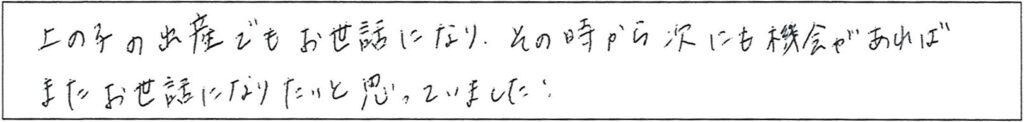 上の子の出産でもお世話になり、その時から次にも機会があれば
またお世話になりたいと思っていました。